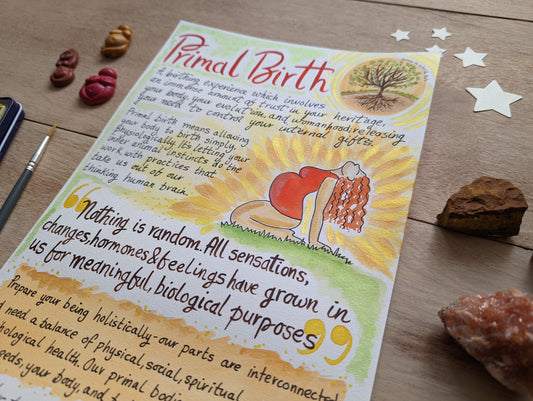 Primal Birth
A birthing experience which involves
an immense amount of trust in your heritage,
your body, your evolution, and womanhood: releasing
your need to control your internal gifts.
Primal birth means allowing
your body to birth simply,
physiologically. It's letting your
inner animal instincts do the
work with practices that
take us out of our
thinking human brain.
"Nothing is random. All sensations,
changes, hormones & feelings have grown in
us for meaningful, biological purposes"
Prepare your being holistically - our parts are interconnected
need a balance of physical, social, spiritual
health. Our primal
your body, and